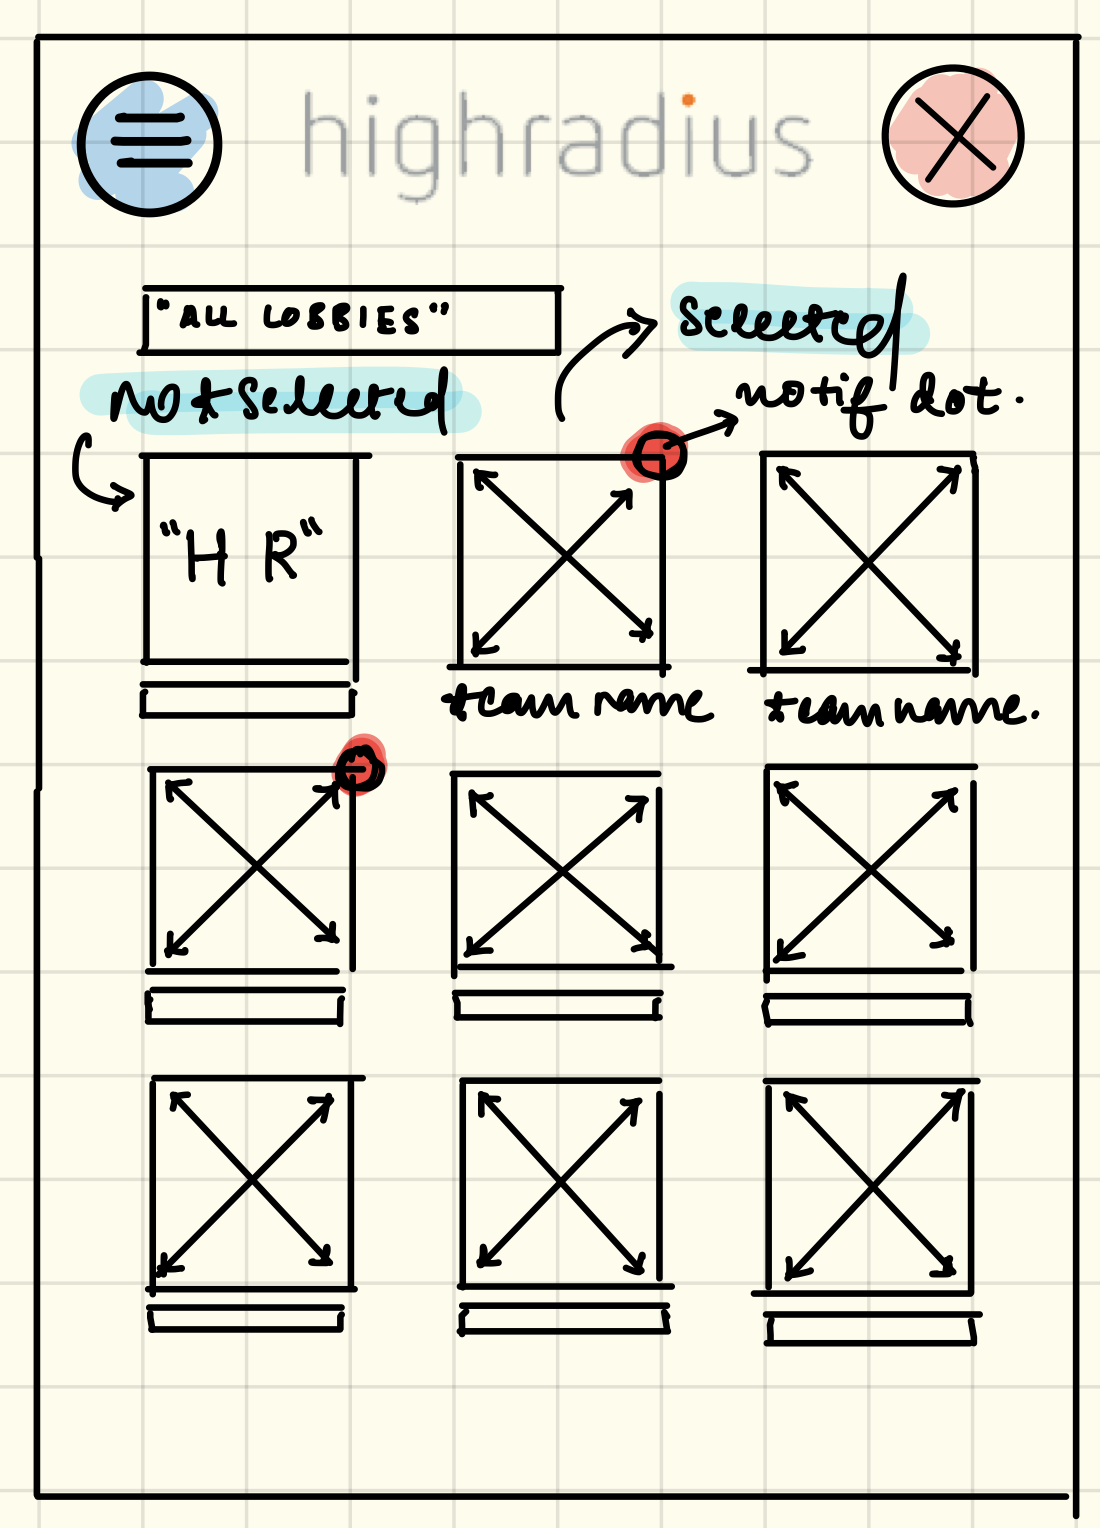 highradius
"ALL LOBBIES"
selected
Not selected
notif dot.
"HR"
team name
team name.